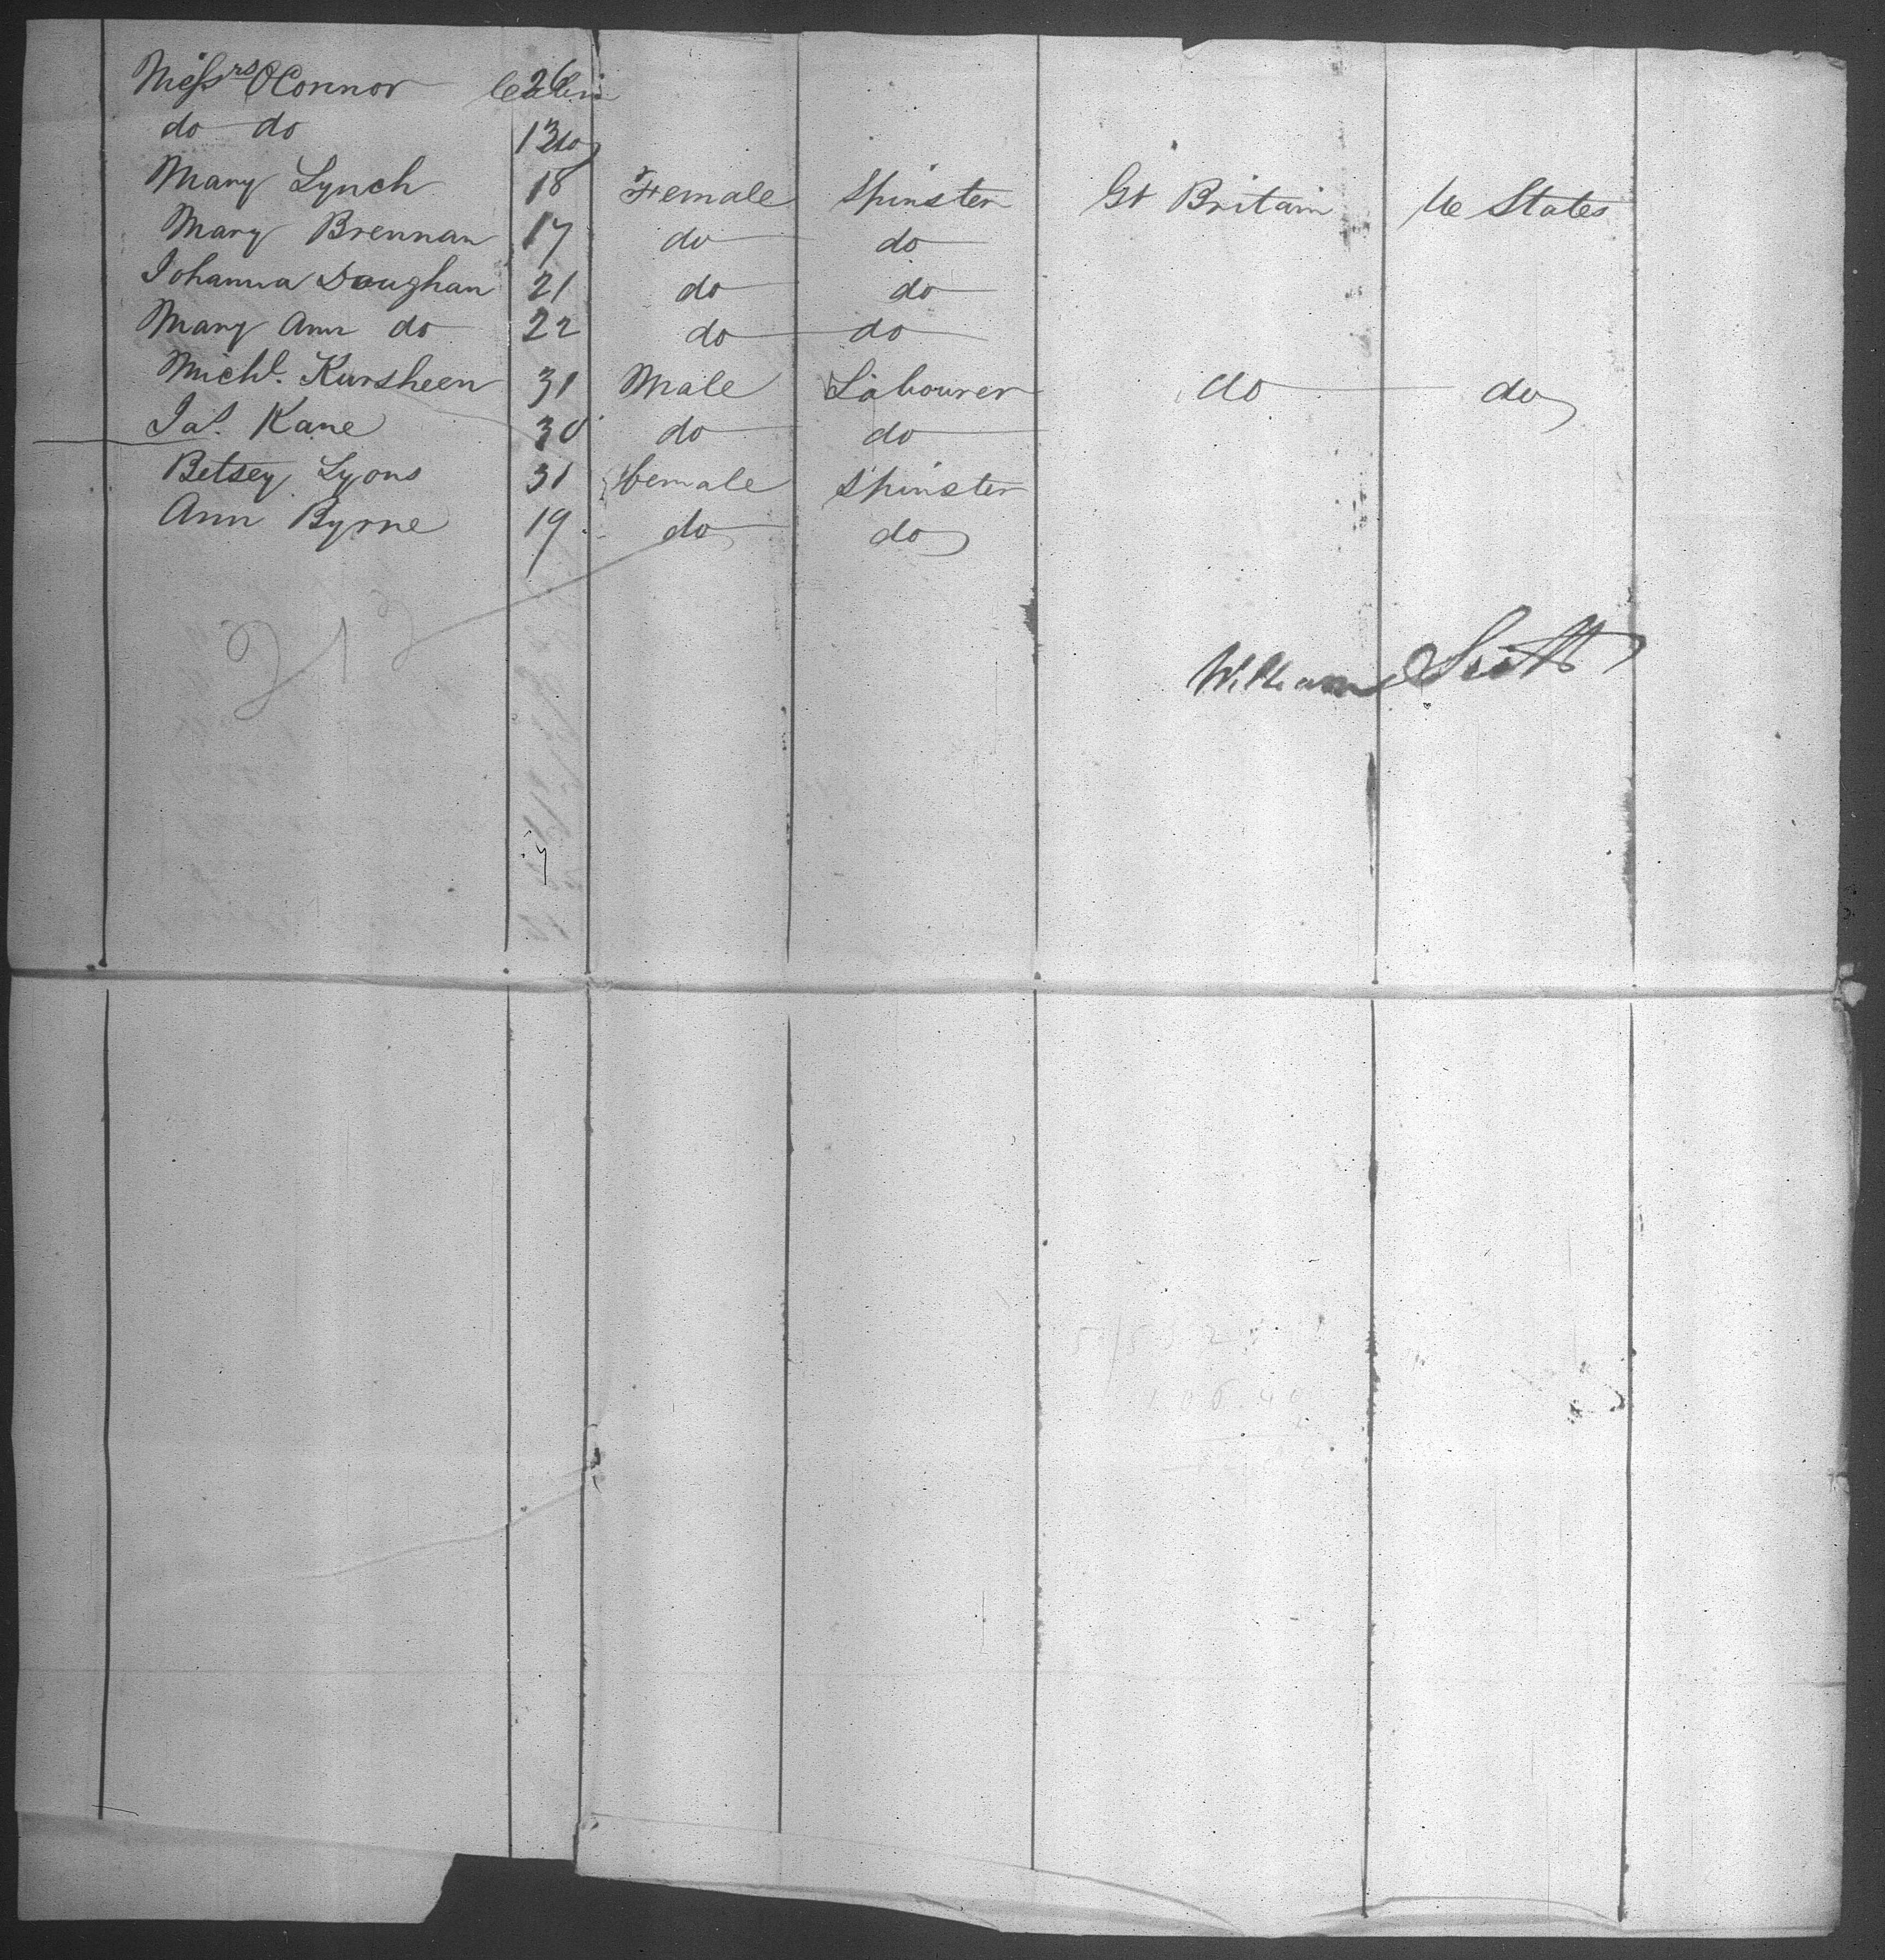 Messrs O'Connor Cabin 26
do do 13 do
Mary Lynch 18 Female Spinster Gt Britain U States
Mary Brennan 17 do do
Johanna Doughan 21 do do
Mary Ann do 22 do do
Michl. Kursheen 31 Male Labourer do do
Jas. Kane 30 do do
Betsey Lyons 31 female Spinster
Ann Byrne 19 do do
212
William Scott